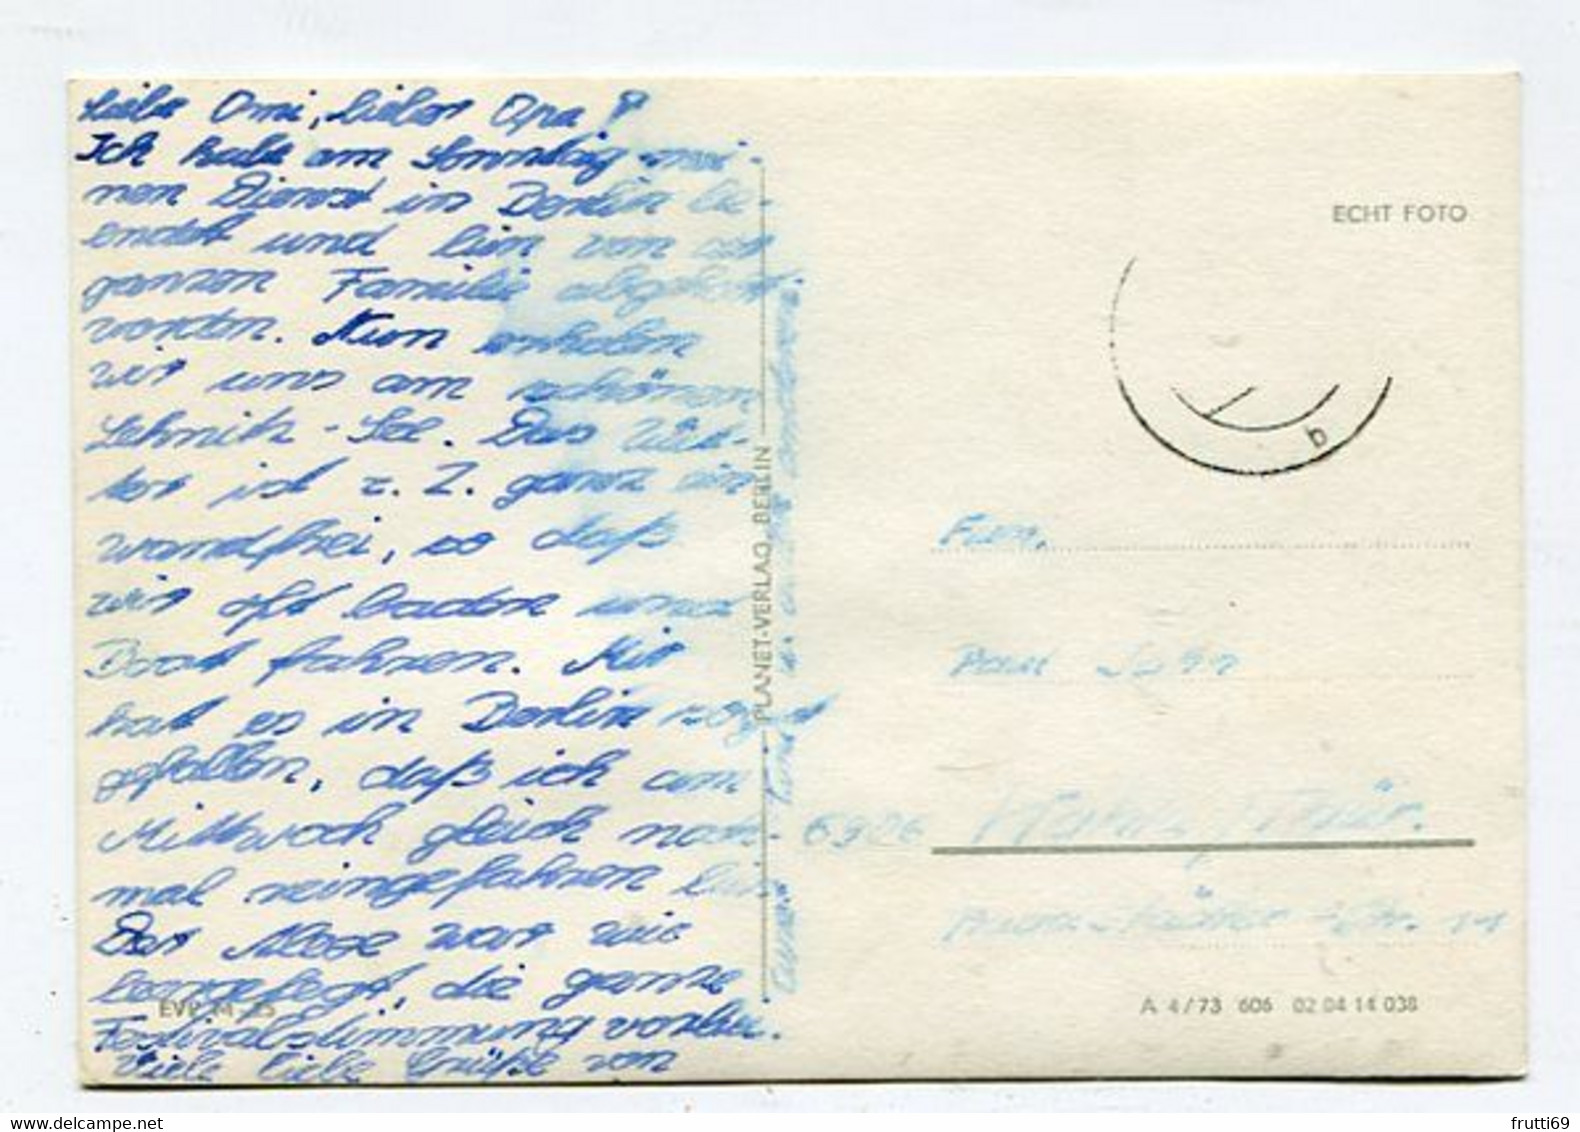 Liebe Omi, lieber Opa!
Ich habe am Sonntag mei-
nen Dienst in Berlin be-
endet und bin von der
ganzen Familie abgeholt
worden. Nun erholen
wir uns am schönen
Lehnitz-See. Das Wet-
ter ist z. Z. ganz ein
wandfrei, so daß
wir oft baden und
Boot fahren. Mir
hat es in Berlin so gut
gefallen, daß ich am
Mittwoch gleich noch-
mal reingefahren bin.
Der Alex war wie
leergefegt, die ganze
Festivalstimmung vorbei.
Viele liebe Grüße von
PLANET-VERLAG, BERLIN
EVP M -,25
ECHT FOTO
b
Fam.
Paul
6906
Str. 11
A 4/73 606 02 04 14 038
frutti69